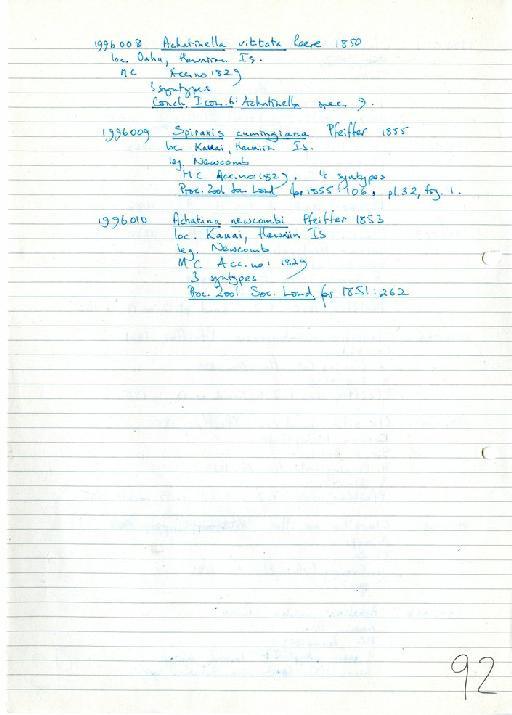 1996008 Achatinella vittata Reeve 1850
loc. Oahu, Hawaiian Is.
MC Acc.no 1829
3 syntypes
Conch. Icon. 6: Achatinella spec. 9.
1996009 Spiraxis cumingiana Pfeiffer 1855
loc. Kauai, Hawaiian Is.
leg. Newcomb
MC Acc.no 1829. 4 syntypes
Proc. Zool. Soc. Lond for 1855: 106, pl.32, fig. 1.
1996010 Achatina newcombi Pfeiffer 1853
loc. Kauai, Hawaiian Is
leg. Newcomb
MC Acc.no: 1829
3 syntypes
Proc. Zool. Soc. Lond for 1851: 262
92